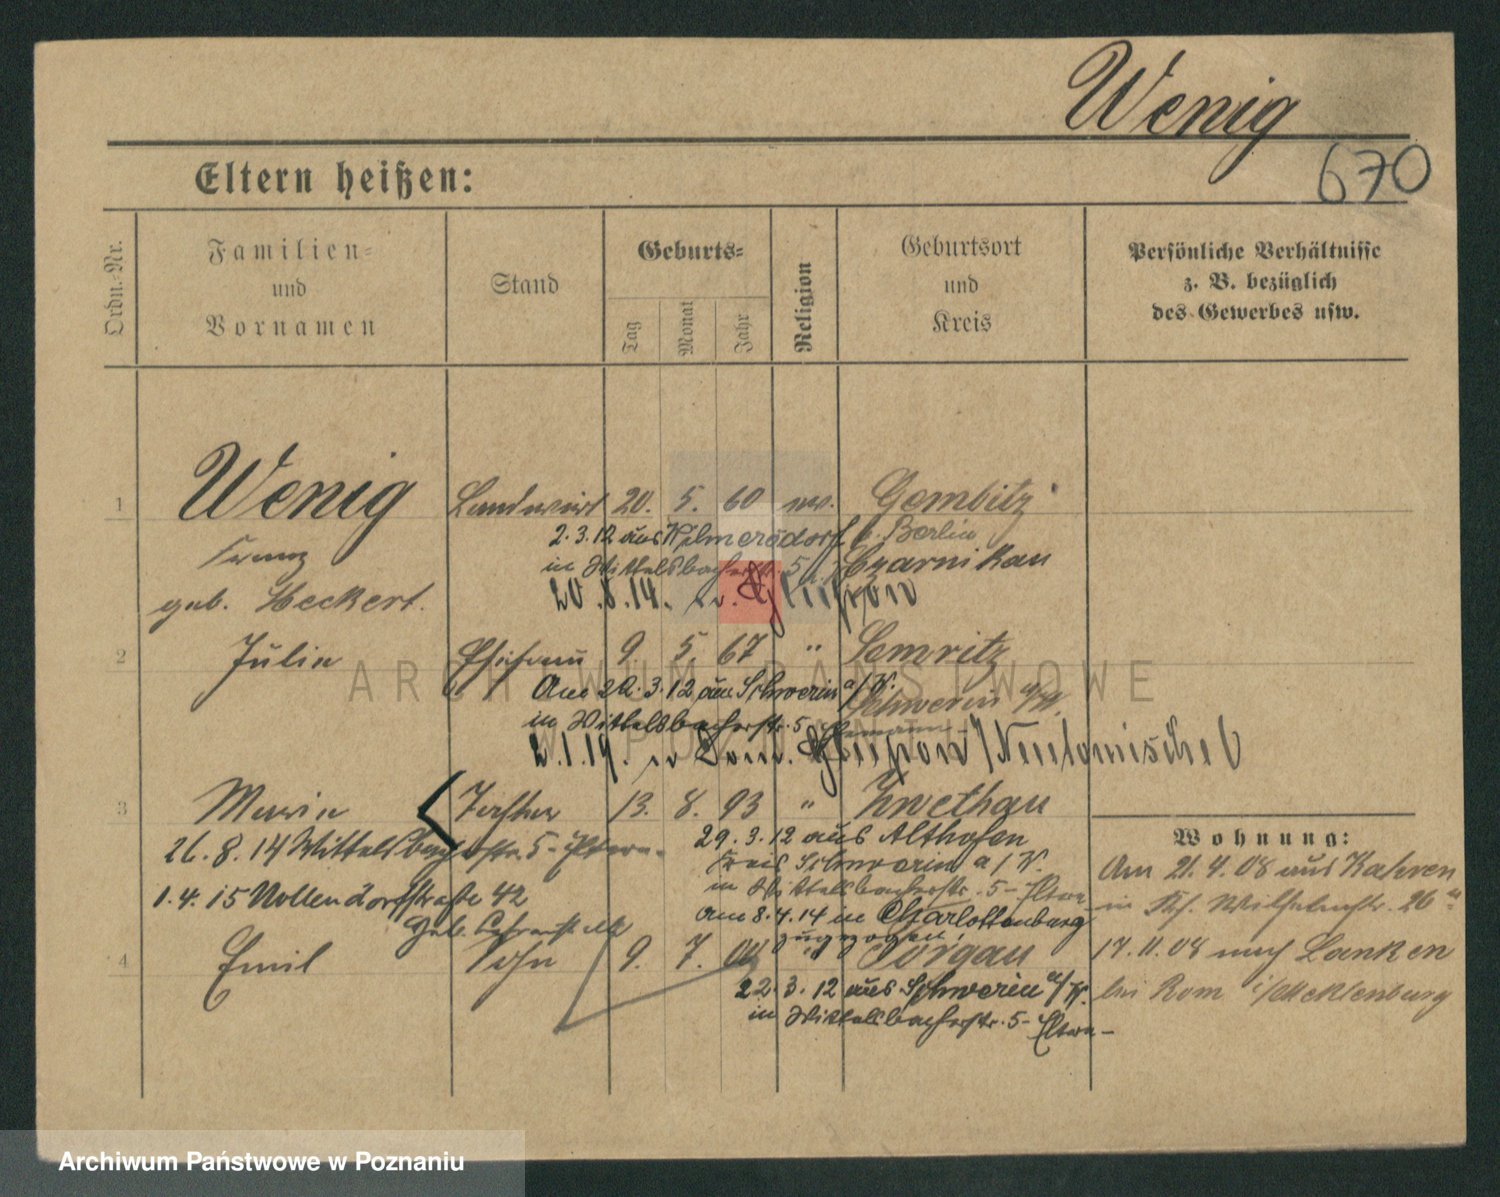 Wenig
670
Eltern heißen:
Ordn.-Nr.
Familien-
und
Vornamen
Stand
Geburts-
Tag
Monat
Jahr
Religion
Geburtsort
und
Kreis
Persönliche Verhältnisse
z. B. bezüglich
des Gewerbes usw.
1 Wenig Landwirt 20. 5. 60 ev. Gembitz
2.3.12 aus Wilmersdorf b. Berlin
Franz in Wittelsbacherstr. 5 Czarnikau
20.8.14.
geb. Heckert.
2 Julie Ehefrau 9. 5. 67 " Semritz
Am 22.3.12 aus Schwerin a/W.
Schwerin a/W.
in Wittelsbacherstr. 5 Ehemann
2.1.19. Neutomischel
3 Marie Tochter 13. 8. 93 " Zwethau
29.3.12 aus Althöfen
26.8.14 Wittelsbacherstr. 5 - Eltern -
Kreis Schwerin a/W.
in Wittelsbacherstr. 5 - Eltern -
1.4.15 Nollendorfstraße 42
Am 8.4.14 in Charlottenburg
zugezogen.
4 Emil Sohn 9. 7. 00 Torgau
22.3.12 aus Schwerin a/W.
in Wittelsbacherstr. 5 - Eltern -
Wohnung:
Am 21.4.08 aus Kahren
in Wilhelmstr. 26
17.11.08 nach Lanken
bei Rom i/Mecklenburg
ARCHIWUM PAŃSTWOWE
W POZNANIU
Archiwum Państwowe w Poznaniu